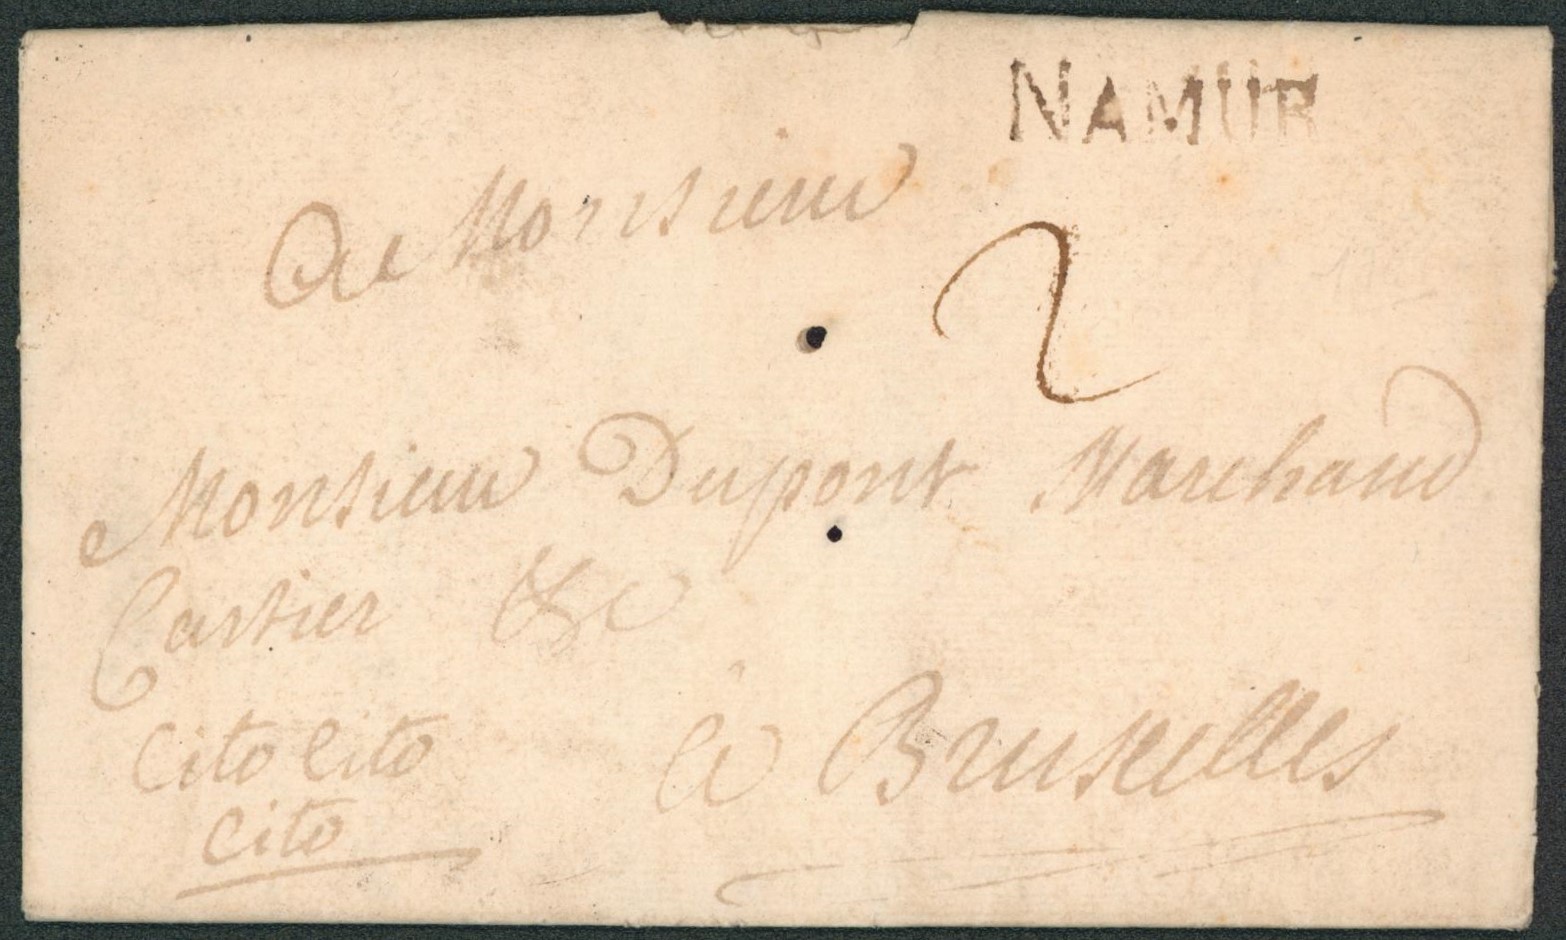 NAMUR
A Monsieur
2
Monsieur Dupont Marchand
Cartier &c
Cito Cito
à Bruxelles
Cito